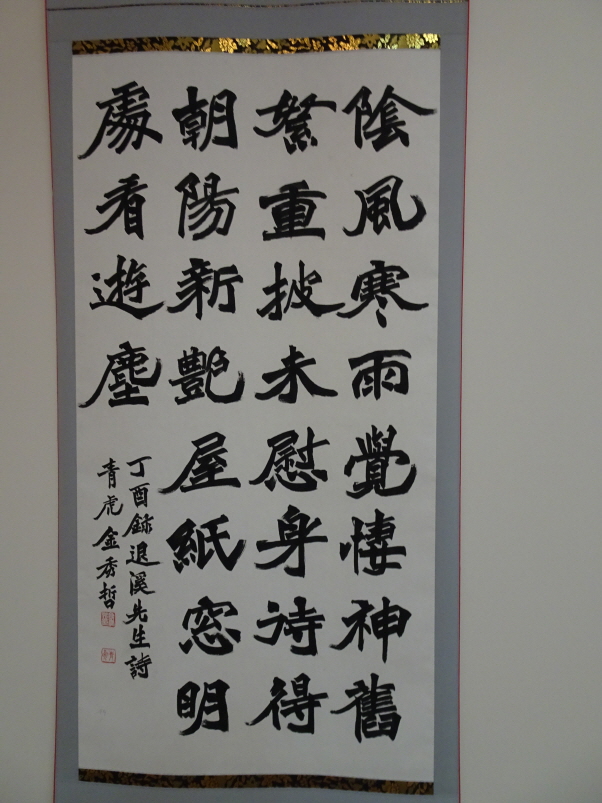 陰風寒雨覺悽神舊
絮重披未慰身待得
朝陽新艶屋紙窓明
處看遊塵
丁酉錄退溪先生詩
青虎金秀哲